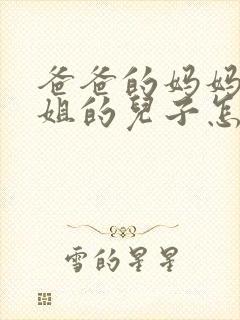 爸爸的妈妈
姐的兒子怎
雪的星星